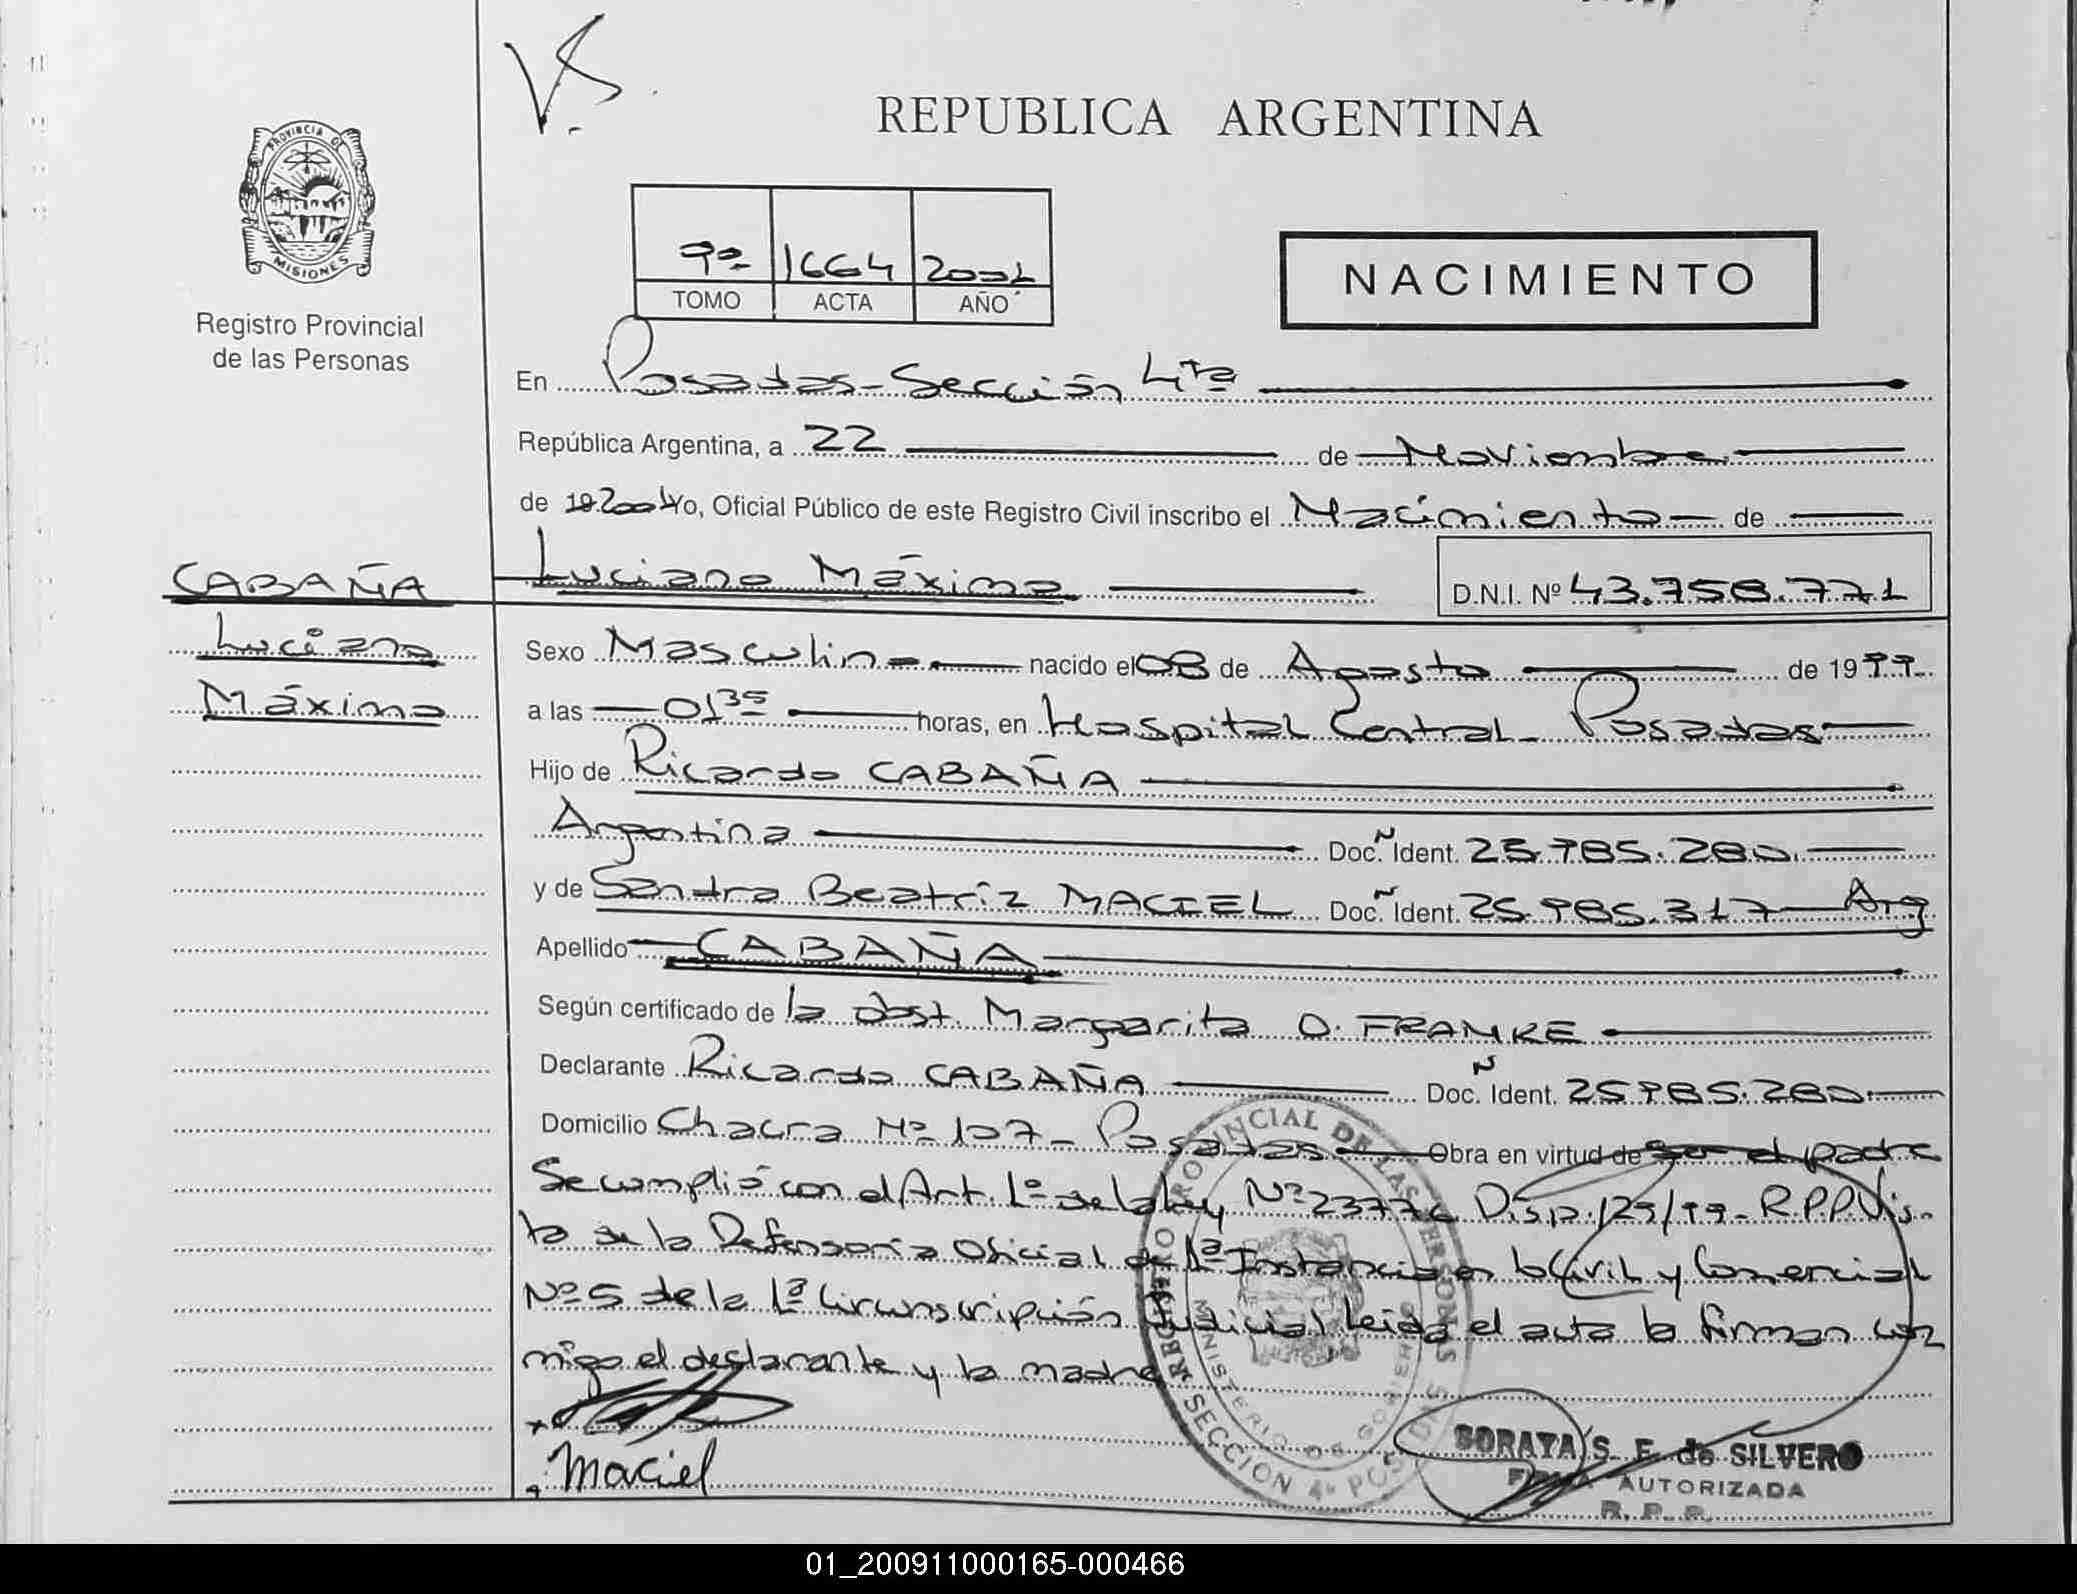 V.S.
REPUBLICA ARGENTINA
PROVINCIA DE
MISIONES
Registro Provincial
de las Personas
9º 1664 2001
TOMO ACTA AÑO
NACIMIENTO
En Posadas-Sección 4ta
República Argentina, a 22 de Noviembre
de 19 2001 Yo, Oficial Público de este Registro Civil inscribo el Nacimiento de
CABAÑA
Luciano
Máximo
Luciano Máximo D.N.I. Nº 43.758.771
Sexo Masculino nacido el 08 de Agosto de 1999
a las 01 35 horas, en Hospital Central- Posadas
Hijo de Ricardo CABAÑA
Argentina Doc. Ñ Ident. 25.985.280
y de Sandra Beatriz MACIEL Doc. Ñ Ident. 25.985.317 Arg
Apellido CABAÑA
Según certificado de la obst. Margarita O. FRANKE
Declarante Ricardo CABAÑA Doc. Ñ Ident. 25985.280
Domicilio Chacra Nº 107- Posadas Obra en virtud de ser el padre
Se cumplió con el Art. 1º de la ley Nº 23776 Disp. 129/99- R.P.P. Vis-
ta de la Defensoría Oficial de 1ª Instancia en lo Civil y Comercial
Nº 5 de la 1ª Circunscripción Judicial leida el acta la firman con
migo el declarante y la madre
Maciel
REGISTRO PROVINCIAL DE LAS PERSONAS
MINISTERIO DE GOBIERNO
SECCION 4ª POSADAS
SORAYA S. F. de SILVERO
FIRMA AUTORIZADA
R. P. P.
01_200911000165-000466